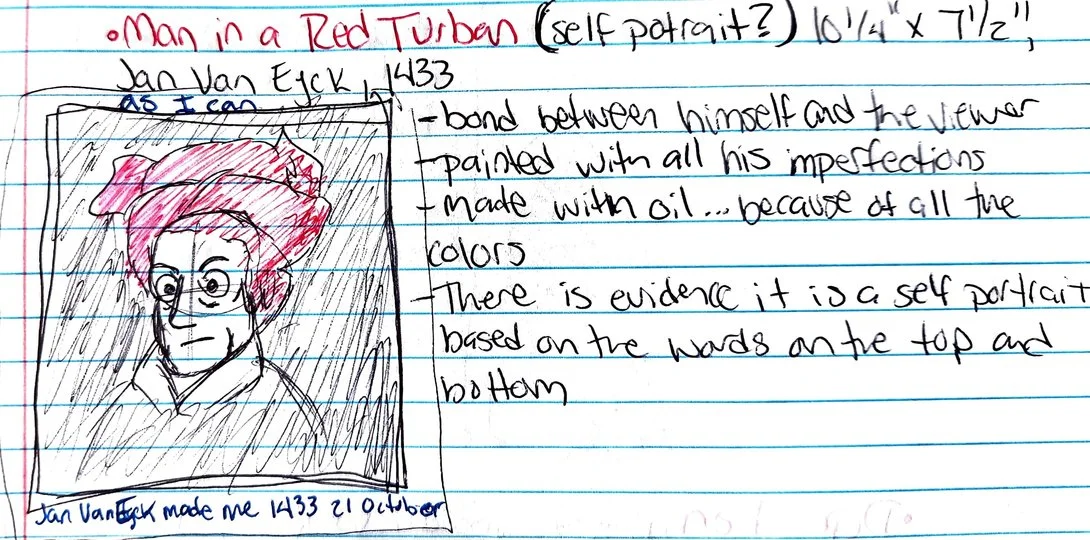 •Man in a Red Turban (self potrait?) 10 1/4" x 7 1/2",
Jan Van Eyck, 1433
as I can
-bond between himself and the viewer
-painted with all his imperfections
-made with oil...because of all the
colors
-There is evidence it is a self portrait
based on the words on the top and
bottom
Jan Van Eyck made me 1433 21 October